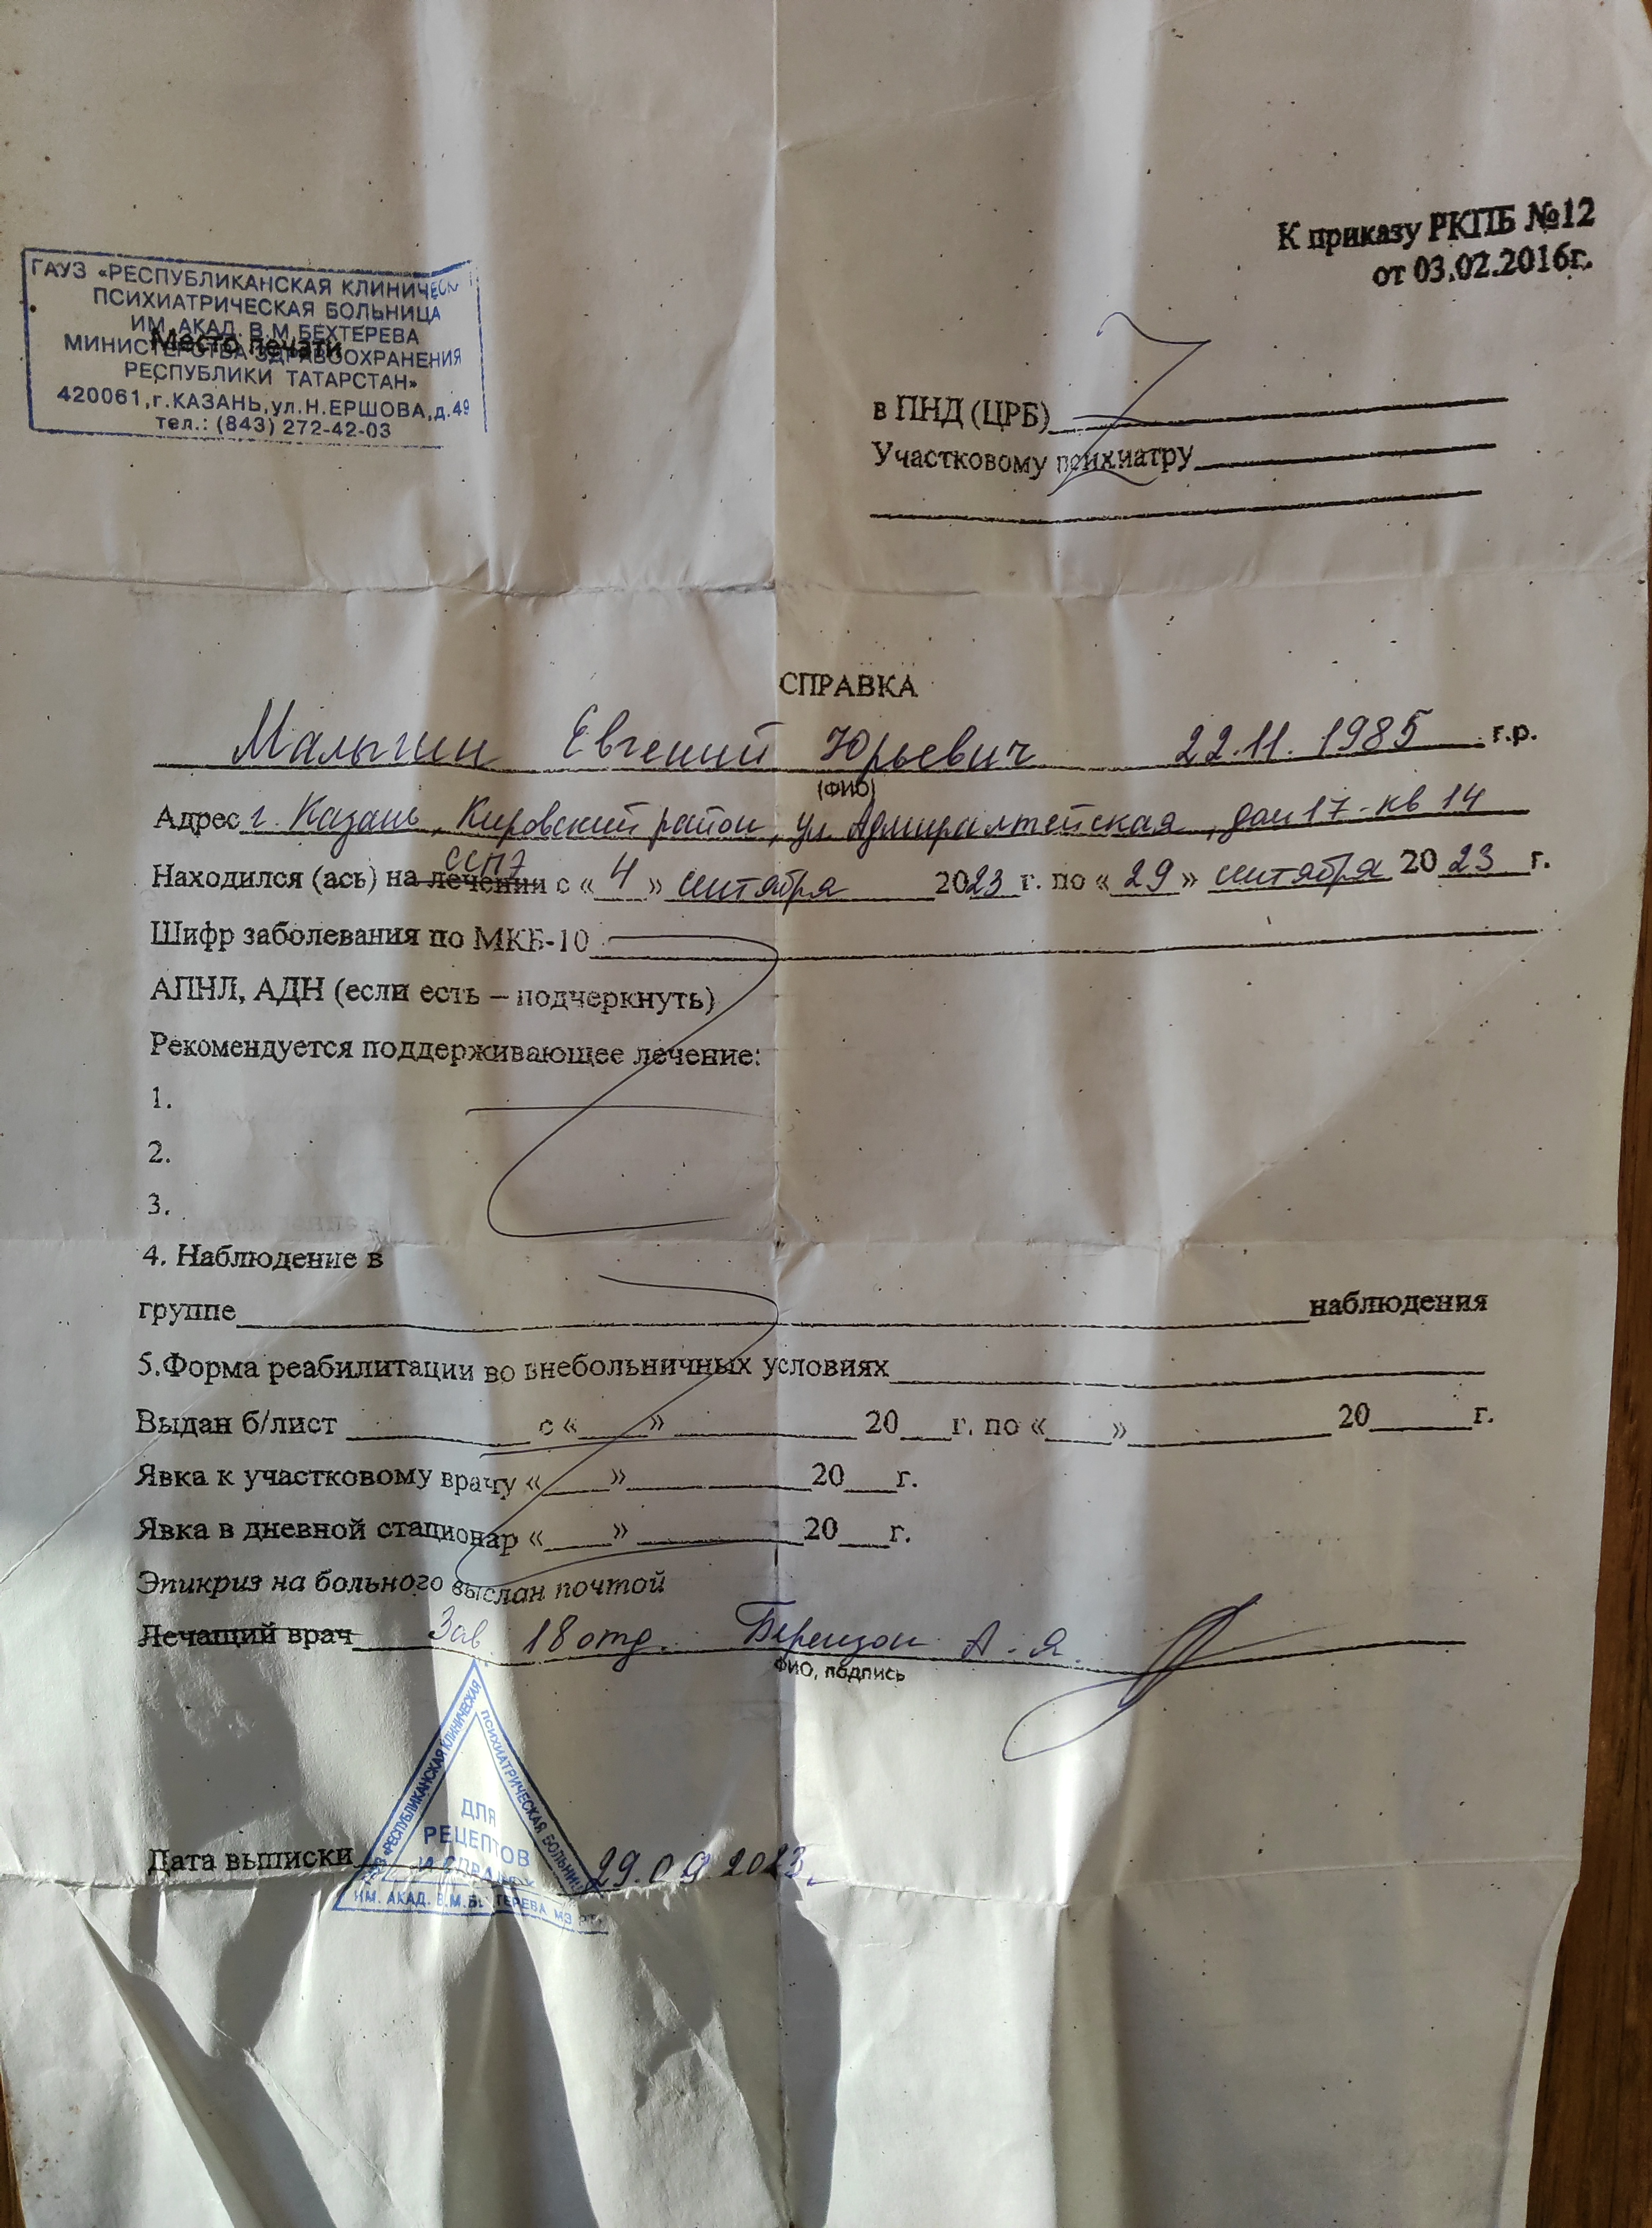 К приказу РКПБ №12
от 03.02.2016г.
ГАУЗ «РЕСПУБЛИКАНСКАЯ КЛИНИЧЕСК
ПСИХИАТРИЧЕСКАЯ БОЛЬНИЦА
ИМ. АКАД. В.М.БЕХТЕРЕВА
Место печати
МИНИСТЕРСТВА ЗДРАВООХРАНЕНИЯ
РЕСПУБЛИКИ ТАТАРСТАН»
420061,г.КАЗАНЬ,ул.Н.ЕРШОВА,д.49
тел.: (843) 272-42-03
в ПНД (ЦРБ)
Участковому психиатру
СПРАВКА
Малыгин Евгений Юрьевич 22.11.1985 г.р.
(ФИО)
Адрес г. Казань, Кировский район, ул Адмиралтейская, дом 17-кв 14
ССПЭ
Находился (ась) на лечении с «4» сентября 2023 г. по «29» сентября 2023 г.
Шифр заболевания по МКБ-10
АПНЛ, АДН (если есть – подчеркнуть)
Рекомендуется поддерживающее лечение:
1.
2.
3.
4. Наблюдение в
группе наблюдения
5.Форма реабилитации во внебольничных условиях
Выдан б/лист с « » 20 г. по « » 20 г.
Явка к участковому врачу « » 20 г.
Явка в дневной стационар « » 20 г.
Эпикриз на больного выслан почтой
Лечащий врач Зав 18 отд. Березон А.Я.
ФИО, подпись
«РЕСПУБЛИКАНСКАЯ КЛИНИЧЕСКАЯ ПСИХИАТРИЧЕСКАЯ БОЛЬНИЦ
ДЛЯ
РЕЦЕПТОВ
Дата выписки 29.09.2023г
ИМ. АКАД. В.М.БЕХТЕРЕВА МЗ РТ